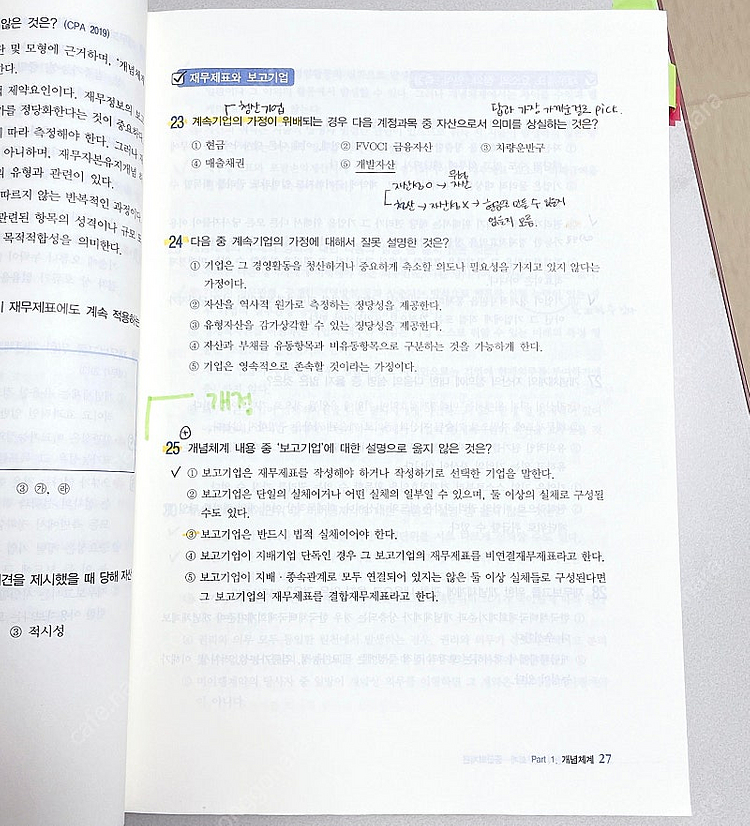 않은 것은? (CPA 2019)
및 모형에 근거하며, '개념체계
한다.
제약요인이다. 재무정보의 보고
를 정당화한다는 것이 중요하다
따라 측정해야 한다. 그러나
아니하며, 재무자본유지개념
의 유형과 관련이 있다.
따르지 않는 반복적인 과정이다
관련된 항목의 성격이나 규모
목적적합성을 의미한다.
재무제표에도 계속 적용하는
③ ㉮, ㉱
견을 제시했을 때 당해 자산
③ 적시성
재무제표와 보고기업
청산기업
답과 가장 가까운걸로 pick.
23 계속기업의 가정이 위배되는 경우 다음 계정과목 중 자산으로서 의미를 상실하는 것은?
① 현금 ② FVOCI 금융자산 ③ 차량운반구
④ 매출채권 ⑤ 개발자산
무형
자산성 O → 자산
청산 → 자산성 X → 현금으로 바꿀 수 있는지
없는지 모름.
24 다음 중 계속기업의 가정에 대해서 잘못 설명한 것은?
① 기업은 그 경영활동을 청산하거나 중요하게 축소할 의도나 필요성을 가지고 있지 않다는
가정이다.
② 자산을 역사적 원가로 측정하는 정당성을 제공한다.
③ 유형자산을 감가상각할 수 있는 정당성을 제공한다.
④ 자산과 부채를 유동항목과 비유동항목으로 구분하는 것을 가능하게 한다.
⑤ 기업은 영속적으로 존속할 것이라는 가정이다.
개정
25 개념체계 내용 중 '보고기업'에 대한 설명으로 옳지 않은 것은?
① 보고기업은 재무제표를 작성해야 하거나 작성하기로 선택한 기업을 말한다.
② 보고기업은 단일의 실체이거나 어떤 실체의 일부일 수 있으며, 둘 이상의 실체로 구성될
수도 있다.
③ 보고기업은 반드시 법적 실체이어야 한다.
④ 보고기업이 지배기업 단독인 경우 그 보고기업의 재무제표를 비연결재무제표라고 한다.
⑤ 보고기업이 지배·종속관계로 모두 연결되어 있지는 않은 둘 이상 실체들로 구성된다면
그 보고기업의 재무제표를 결합재무제표라고 한다.
Part 1. 개념체계 27